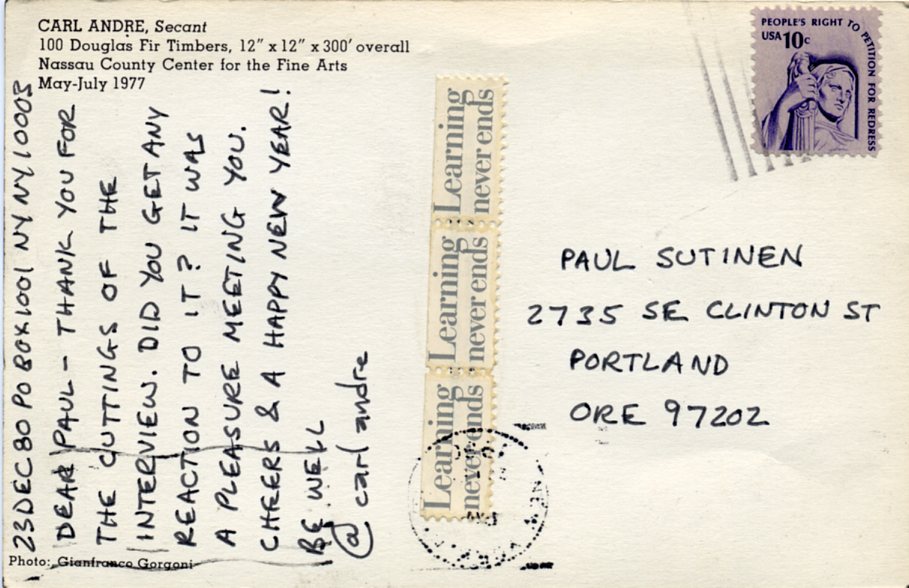 CARL ANDRE, Secant
100 Douglas Fir Timbers, 12" x 12" x 300' overall
Nassau County Center for the Fine Arts
May-July 1977
23 DEC 80 PO BOX 1001 NY NY 10003
DEAR PAUL - THANK YOU FOR
THE CUTTINGS OF THE
INTERVIEW. DID YOU GET ANY
REACTION TO IT? IT WAS
A PLEASURE MEETING YOU.
CHEERS & A HAPPY NEW YEAR!
BE WELL
@ carl andre
Photo: Gianfranco Gorgoni
Learning
never ends
Learning
never ends
Learning
never ends
PEOPLE'S RIGHT TO PETITION FOR REDRESS
USA 10c
PAUL SUTINEN
2735 SE CLINTON ST
PORTLAND
ORE 97202